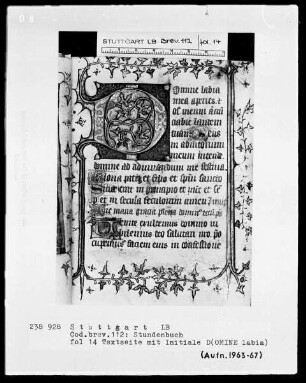 STUTTGART LB Brev.112 fol. 14
omine labia
mea aperies. et
os meum
nabit laudem
tuam. Deus
in adiutorium
meum intende
domine ad adiuvandum me festina
Gloria patri et filio et spiritui sancto
Sicut erat in principio et nunc et semper
et in secula seculorum amen
ave maria gracia plena dominus tecum
Venite exultemus domino iu
bilemus deo salutari nostro
faciem eius in confessione
238 928 Stuttgart LB
Cod.brev.112: Stundenbuch
fol 14 Textseite mit Initiale D(OMINE labia)
(Aufn.1963-67)